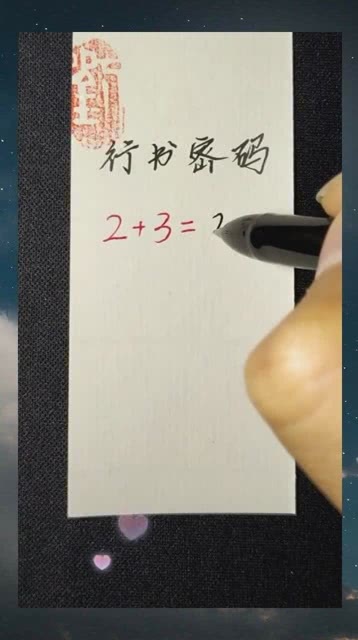 行书密码
2+3=